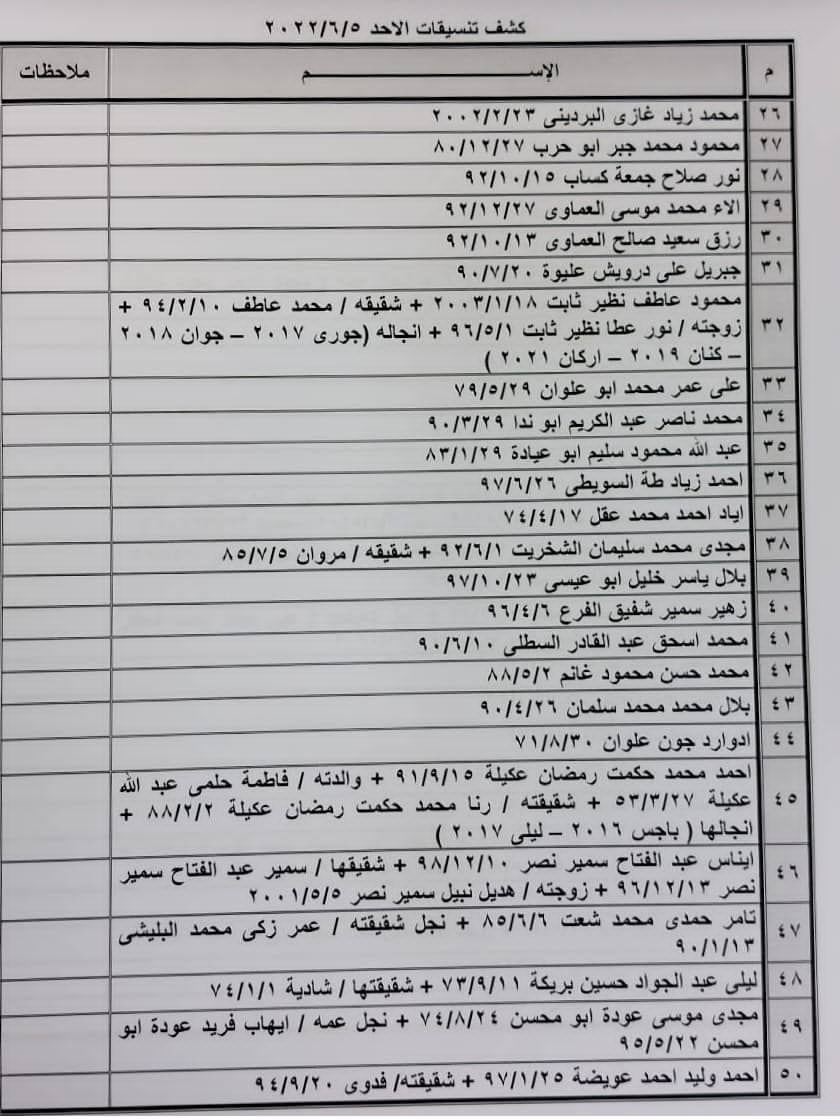 كشف تنسيقات الاحد ٢٠٢٢/٦/٥
م الإســــــــــم ملاحظات
٢٦ محمد زياد غازى البردينى ٢٠٠٢/٢/٢٣
٢٧ محمود محمد جبر ابو حرب ٨٠/١٢/٢٧
٢٨ نور صلاح جمعة كساب ٩٢/١٠/١٥
٢٩ الاء محمد موسى العماوى ٩٢/١٢/٢٧
٣٠ رزق سعيد صالح العماوى ٩٢/١٠/١٣
٣١ جبريل على درويش عليوة ٩٠/٧/٢٠
محمود عاطف نظير ثابت ٢٠٠٣/١/١٨ + شقيقه / محمد عاطف ٩٤/٢/١٠ +
٣٢ زوجته / نور عطا نظير ثابت ٩٦/٥/١ + انجاله (جورى ٢٠١٧ – جوان ٢٠١٨
– كنان ٢٠١٩ – اركان ٢٠٢١ )
٣٣ على عمر محمد ابو علوان ٧٩/٥/٢٩
٣٤ محمد ناصر عبد الكريم ابو ندا ٩٠/٣/٢٩
٣٥ عبد الله محمود سليم ابو عيادة ٨٣/١/٢٩
٣٦ احمد زياد طة السويطى ٩٧/٦/٢٦
٣٧ اياد احمد محمد عقل ٧٤/٤/١٧
٣٨ مجدى محمد سليمان الشخريت ٩٢/٦/١ + شقيقه / مروان ٨٥/٧/٥
٣٩ بلال ياسر خليل ابو عيسى ٩٧/١٠/٢٣
٤٠ زهير سمير شفيق الفرع ٩٦/٤/٦
٤١ محمد اسحق عبد القادر السطلى ٩٠/٦/١٠
٤٢ محمد حسن محمود غانم ٨٨/٥/٢
٤٣ بلال محمد محمد سلمان ٩٠/٤/٢٦
٤٤ ادوارد جون علوان ٧١/٨/٣٠
احمد محمد حكمت رمضان عكيلة ٩١/٩/١٥ + والدته / فاطمة حلمى عبد الله
٤٥ عكيلة ٥٣/٣/٢٧ + شقيقته / رنا محمد حكمت رمضان عكيلة ٨٨/٢/٢ +
انجالها ( باجس ٢٠١٦ – ليلى ٢٠١٧ )
٤٦ ايناس عبد الفتاح سمير نصر ٩٨/١٢/١٠ + شقيقها / سمير عبد الفتاح سمير
نصر ٩٦/١٢/١٣ + زوجته / هديل نبيل سمير نصر ٢٠٠١/٥/٥
٤٧ تامر حمدى محمد شعت ٨٥/٦/٦ + نجل شقيقته / عمر زكى محمد البليشى
٩٠/١/١٣
٤٨ ليلى عبد الجواد حسين بريكة ٧٣/٩/١١ + شقيقتها / شادية ٧٤/١/١
٤٩ مجدى موسى عودة ابو محسن ٧٤/٨/٢٤ + نجل عمه / ايهاب فريد عودة ابو
محسن ٩٥/٥/٢٢
٥٠ احمد وليد احمد عويضة ٩٧/١/٢٥ + شقيقته/ فدوى ٩٤/٩/٢٠